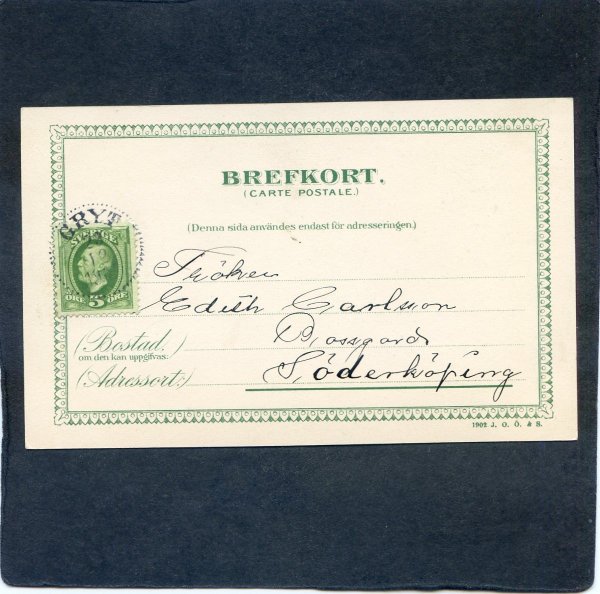 BREFKORT.
(CARTE POSTALE.)
(Denna sida användes endast för adresseringen.)
GRYT
SVERIGE
ÖRE 5 ÖRE
Fröken
Edith Carlsson
Söderköping
(Bostad.
om den kan uppgifvas.)
(Adressort:)
1902 J. O. Ö. & S.